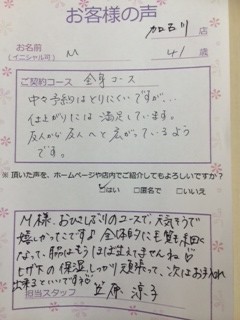 お客様の声
加古川 店
お名前
(イニシャル可) M 41 歳
ご契約コース 全身コース
中々予約はとりにくいですが、、
仕上がりには満足しています。
友人から友人へと広がっているよう
です。
※頂いた声を、ホームページや店内でご紹介してもよろしいですか?
☑はい □匿名で □いいえ
M様、おひさしぶりのコースで、元気そうで
嬉しかったこです♪ 全体的にも質も細く
なって、脇はもうほぼ生えてませんね♡
ヒザ下の保湿、しっかり頑張って、次はお手入れ
出来るといいですね。
担当スタッフ 笠原 涼子